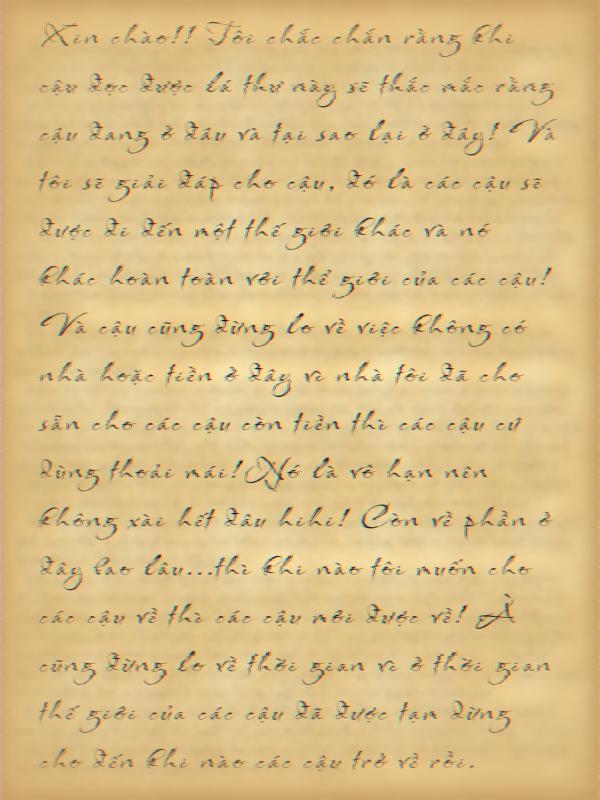 Xin chào!! Tôi chắc chắn rằng khi
cậu đọc được lá thư này sẽ thắc mắc rằng
cậu đang ở đâu và tại sao lại ở đây! Và
tôi sẽ giải đáp cho cậu, đó là các cậu sẽ
được đi đến một thế giới khác và nó
khác hoàn toàn với thế giới của các cậu!
Và cậu cũng đừng lo về việc không có
nhà hoặc tiền ở đây vì nhà tôi đã cho
sẵn cho các cậu còn tiền thì các cậu cứ
dùng thoải mái! Nó là vô hạn nên
không xài hết đâu hihi! Còn về phần ở
đây bao lâu...thì khi nào tôi muốn cho
các cậu về thì các cậu mới được về! À
cũng đừng lo về thời gian vì ở thời gian
thế giới của các cậu đã được tạm dừng
cho đến khi nào các cậu trở về rồi.